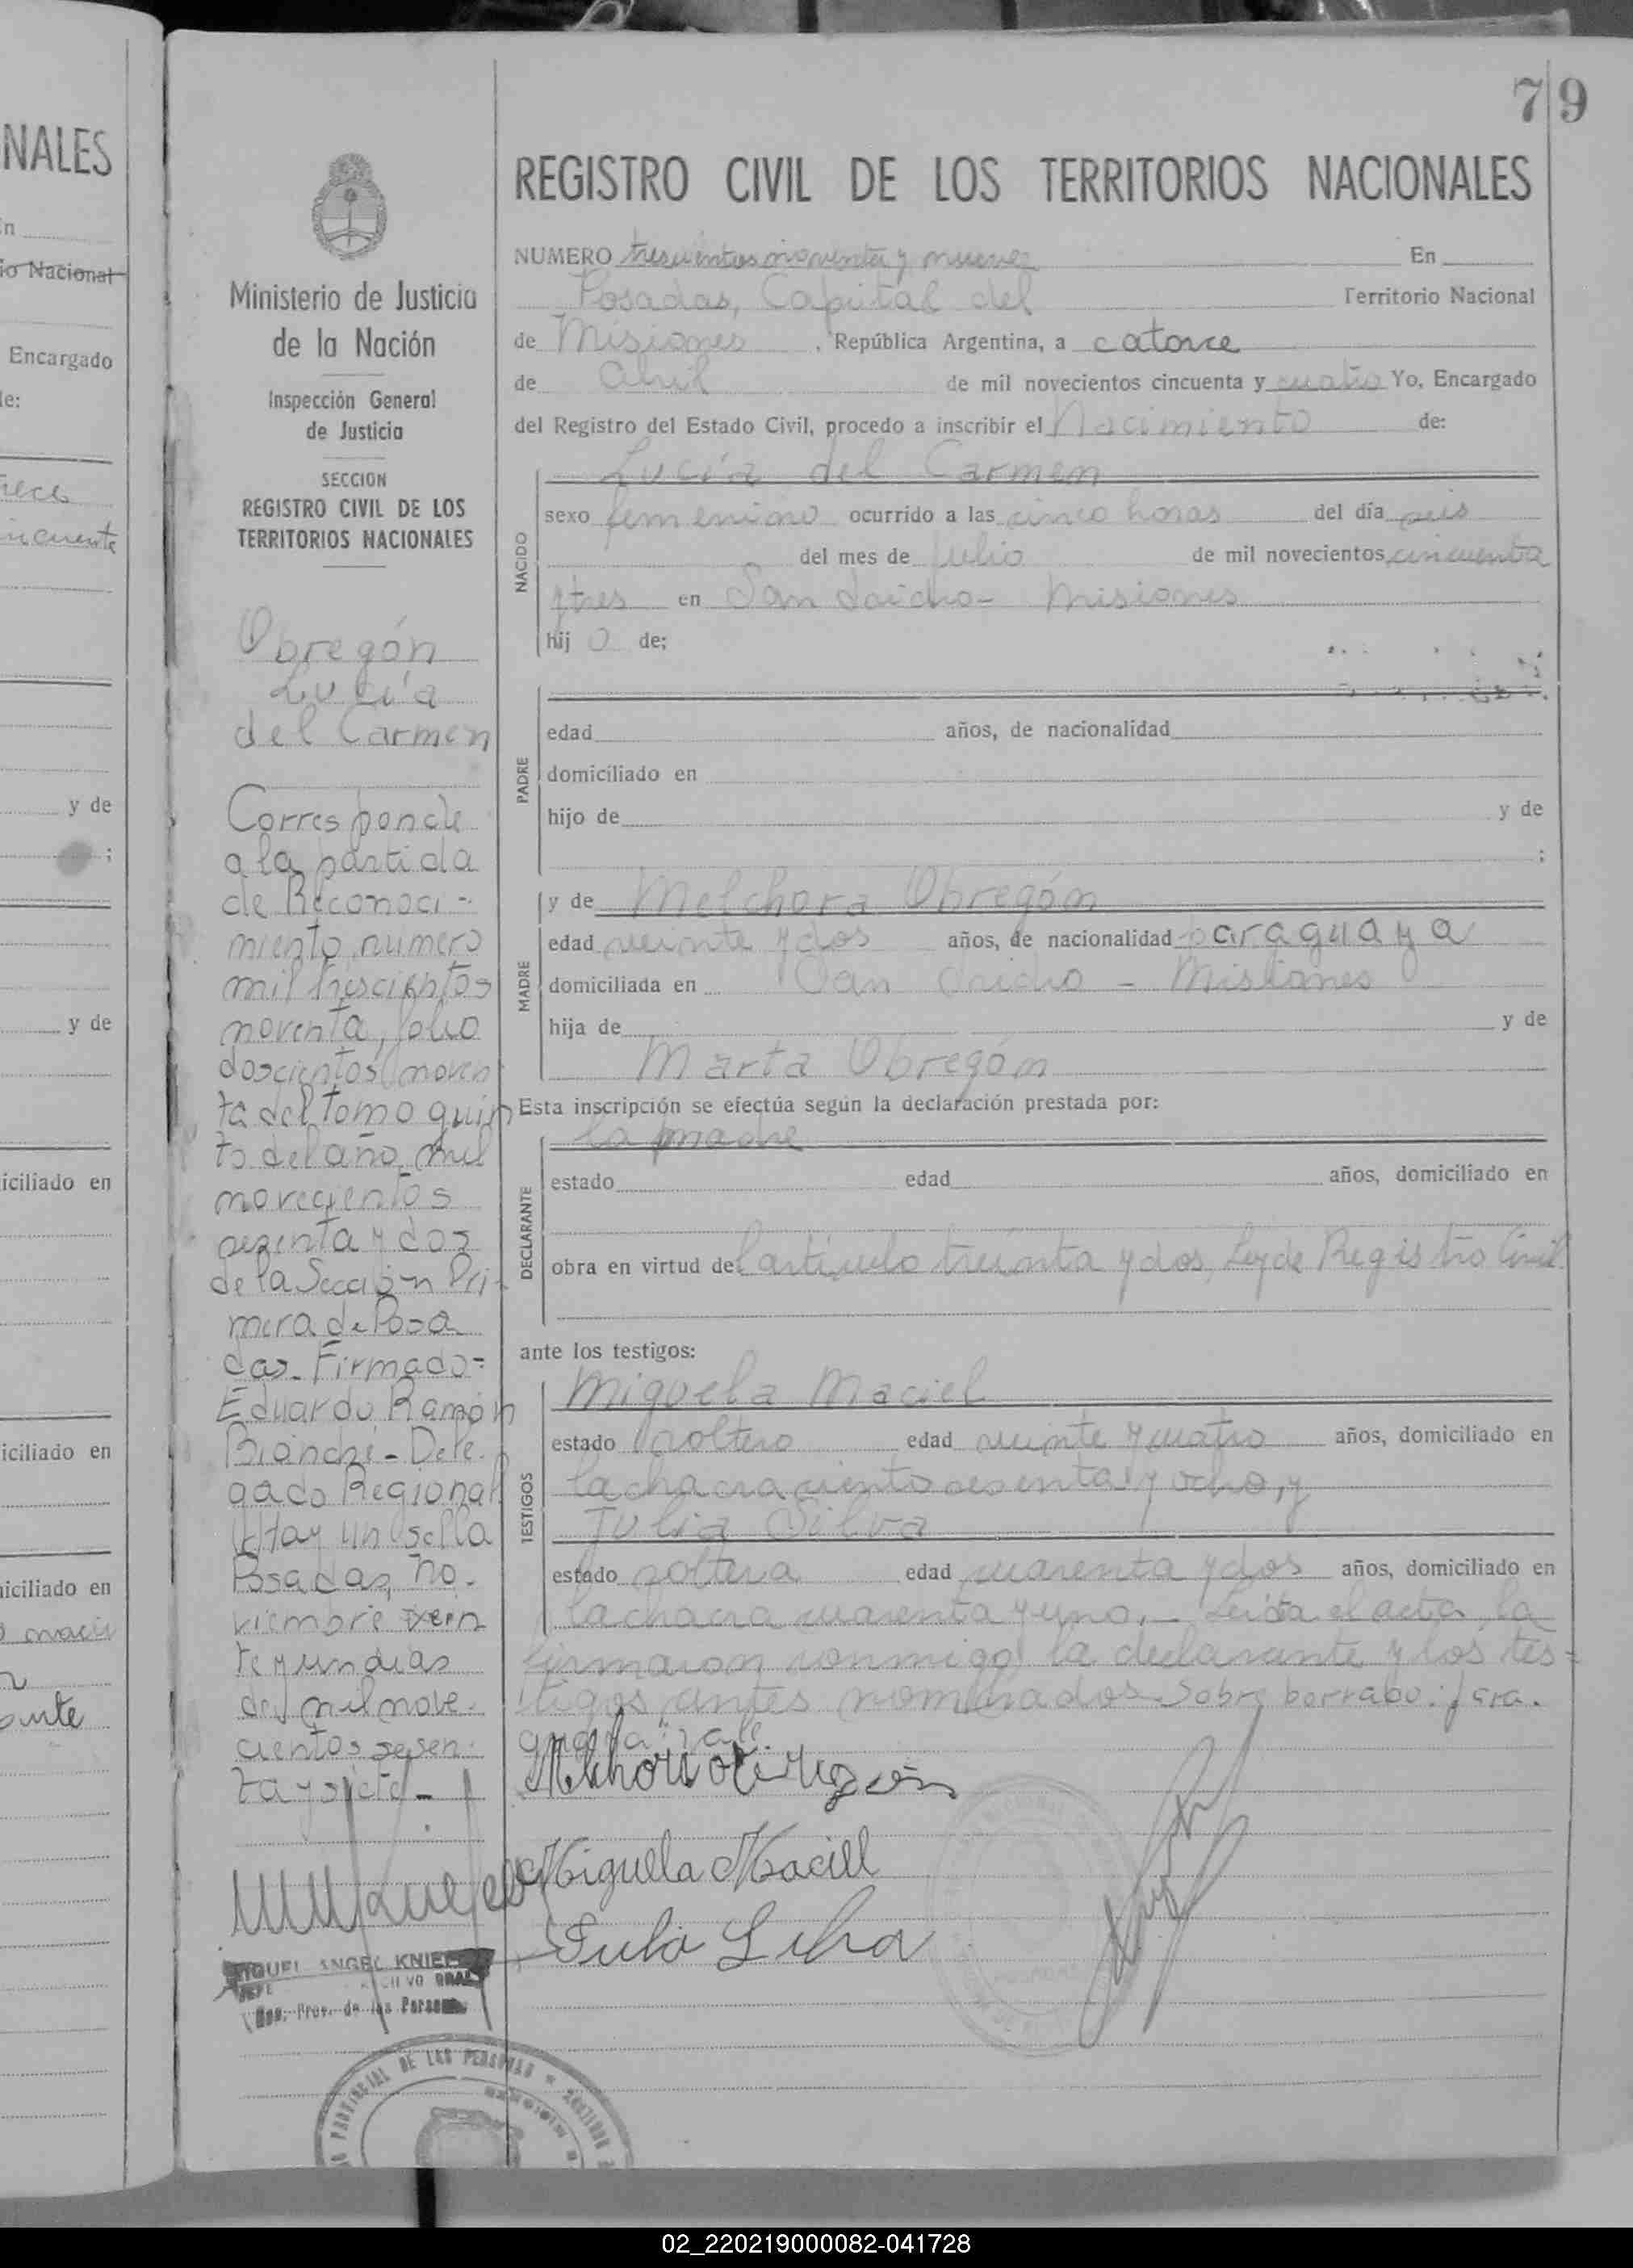 79
REGISTRO CIVIL DE LOS TERRITORIOS NACIONALES
NUMERO trescientos noventa y nueve En
Posadas, Capital del Territorio Nacional
de Misiones, República Argentina, a catorce
de Abril de mil novecientos cincuenta y cuatro Yo, Encargado
del Registro del Estado Civil, procedo a inscribir el Nacimiento de:
NACIDO
Lucía del Carmen
sexo femenino ocurrido a las cinco horas del día seis
del mes de Julio de mil novecientos cincuenta
y tres en San Isidro - Misiones
hij a de:
PADRE
edad años, de nacionalidad
domiciliado en
hijo de y de
;
MADRE
y de Melchora Obregón
edad veinte y dos años, de nacionalidad paraguaya
domiciliada en San Isidro - Misiones
hija de y de
Marta Obregón
Esta inscripción se efectúa según la declaración prestada por:
DECLARANTE
la madre
estado edad años, domiciliado en
obra en virtud del artículo treinta y dos, Ley de Registro Civil
ante los testigos:
TESTIGOS
Miguela Maciel
estado soltero edad veinte y cuatro años, domiciliado en
la chacra ciento sesenta y ocho, y
Julia Silva
estado soltera edad cuarenta y dos años, domiciliado en
la chacra cuarenta y uno.- Leída el acta, la
firmaron conmigo la declarante y los tes=
tigos antes nombrados. Sobre borrado: "para.
guaya": vale.
Melchora Obregón
Miguela Maciel
Julia Silva
Ministerio de Justicia
de la Nación
Inspección General
de Justicia
SECCION
REGISTRO CIVIL DE LOS
TERRITORIOS NACIONALES
Obregón
Lucía
del Carmen
Corresponde
a la partida
de Reconoci-
miento, número
mil trescientos
noventa, folio
doscientos noven
ta del tomo quin
to del año mil
novecientos
sesenta y dos
de la Sección Pri-
mera de Posa
das. Firmado=
Eduardo Ramón
Bianchi - Dele.
gado Regional
Hay un sello
Posadas, no.
viembre vein
te y un días
de mil nove.
cientos sesen.
ta y siete.-
MIGUEL ANGEL
JEFE
Prov. de las Personas
PROVINCIAL DE LAS PERSONAS
NALES
En
io Nacional
Encargado
de:
y de
;
y de
iciliado en
iciliado en
iciliado en
02_220219000082-041728